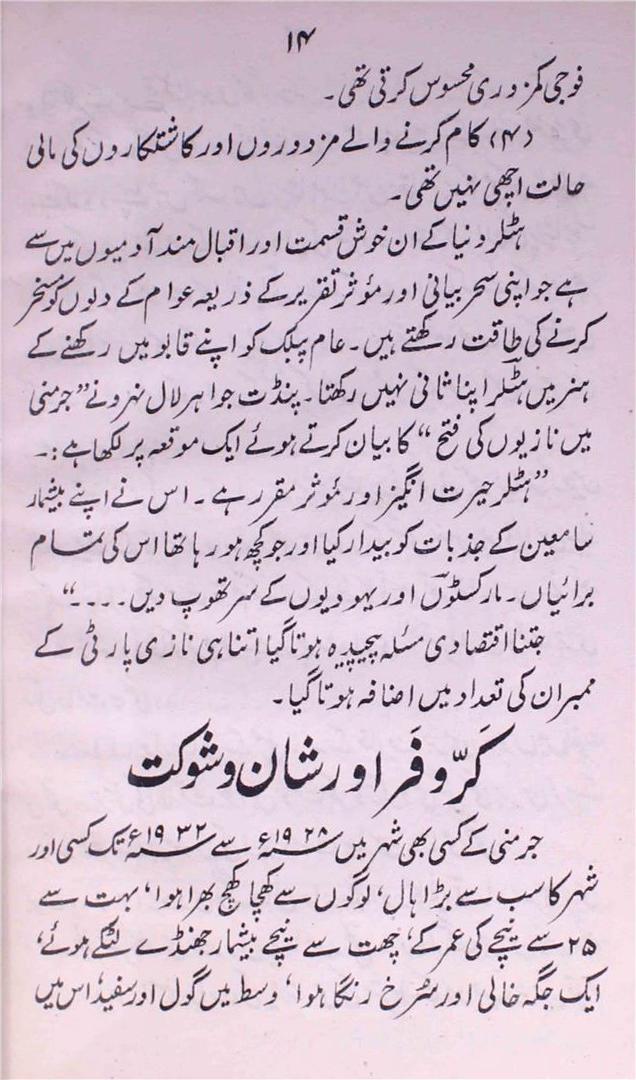 ۱۴
فوجی کمزوری محسوس کرتی تھی۔
(۴) کام کرنے والے مزدوروں اور کاشتکاروں کی مالی
حالت اچھی نہیں تھی۔
ہٹلر دنیا کے ان خوش قسمت اور اقبال مند آدمیوں میں سے
ہے جو اپنی سحر بیانی اور مؤثر تقریر کے ذریعہ عوام کے دلوں کو مسخر
کرنے کی طاقت رکھتے ہیں۔ عام پبلک کو اپنے قابو میں رکھنے کے
ہنر میں ہٹلر اپنا ثانی نہیں رکھتا۔ پنڈت جواہر لال نہرو نے ”جرمنی
میں نازیوں کی فتح“ کا بیان کرتے ہوئے ایک موقعہ پر لکھا ہے:۔
”ہٹلر حیرت انگیز اور مؤثر مقرر ہے۔ اس نے اپنے بیشمار
سامعین کے جذبات کو بیدار کیا اور جو کچھ ہو رہا تھا اس کی تمام
برائیاں۔ مارکسٹوں اور یہودیوں کے سر تھوپ دیں۔۔۔۔“
جتنا اقتصادی مسئلہ پیچیدہ ہوتا گیا اتنا ہی نازی پارٹی کے
ممبران کی تعداد میں اضافہ ہوتا گیا۔
کَرّ و فَر اور شان و شوکت
جرمنی کے کسی بھی شہر میں ۱۹۲۸ء سے ۱۹۳۲ء تک کسی اور
شہر کا سب سے بڑا ہال، لوگوں سے کھچا کھچ بھرا ہوا، بہت سے
۲۵ سے نیچے کی عمر کے، چھت سے نیچے بیشمار جھنڈے لٹکے ہوئے،
ایک جگہ خالی اور سُرخ رنگا ہوا، وسط میں گول اور سفید اس میں